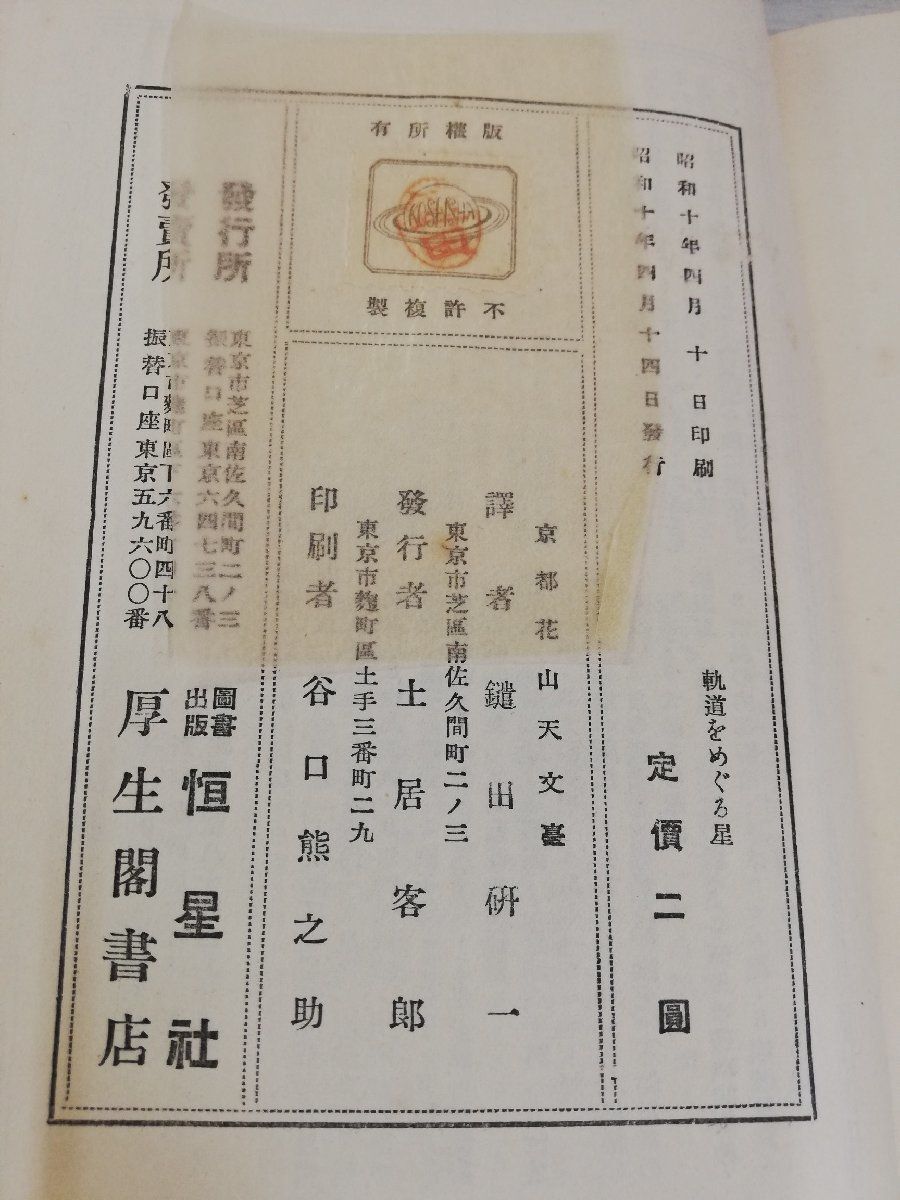 昭和十年四月十日印刷
昭和十年四月十四日發行
軌道をめぐる星
定價二圓
版權所有
KOSEISHA
不許複製
京都花山天文臺
譯者 鑓田研一
東京市芝區南佐久間町二ノ三
發行者 土居客郎
東京市麴町區土手三番町二九
印刷者 谷口熊之助
發行所
東京市芝區南佐久間町二ノ三
振替口座東京六四七三八番
圖書出版 恒星社
發賣所
東京市麴町區下六番町四十八
振替口座東京五九六〇〇番
厚生閣書店